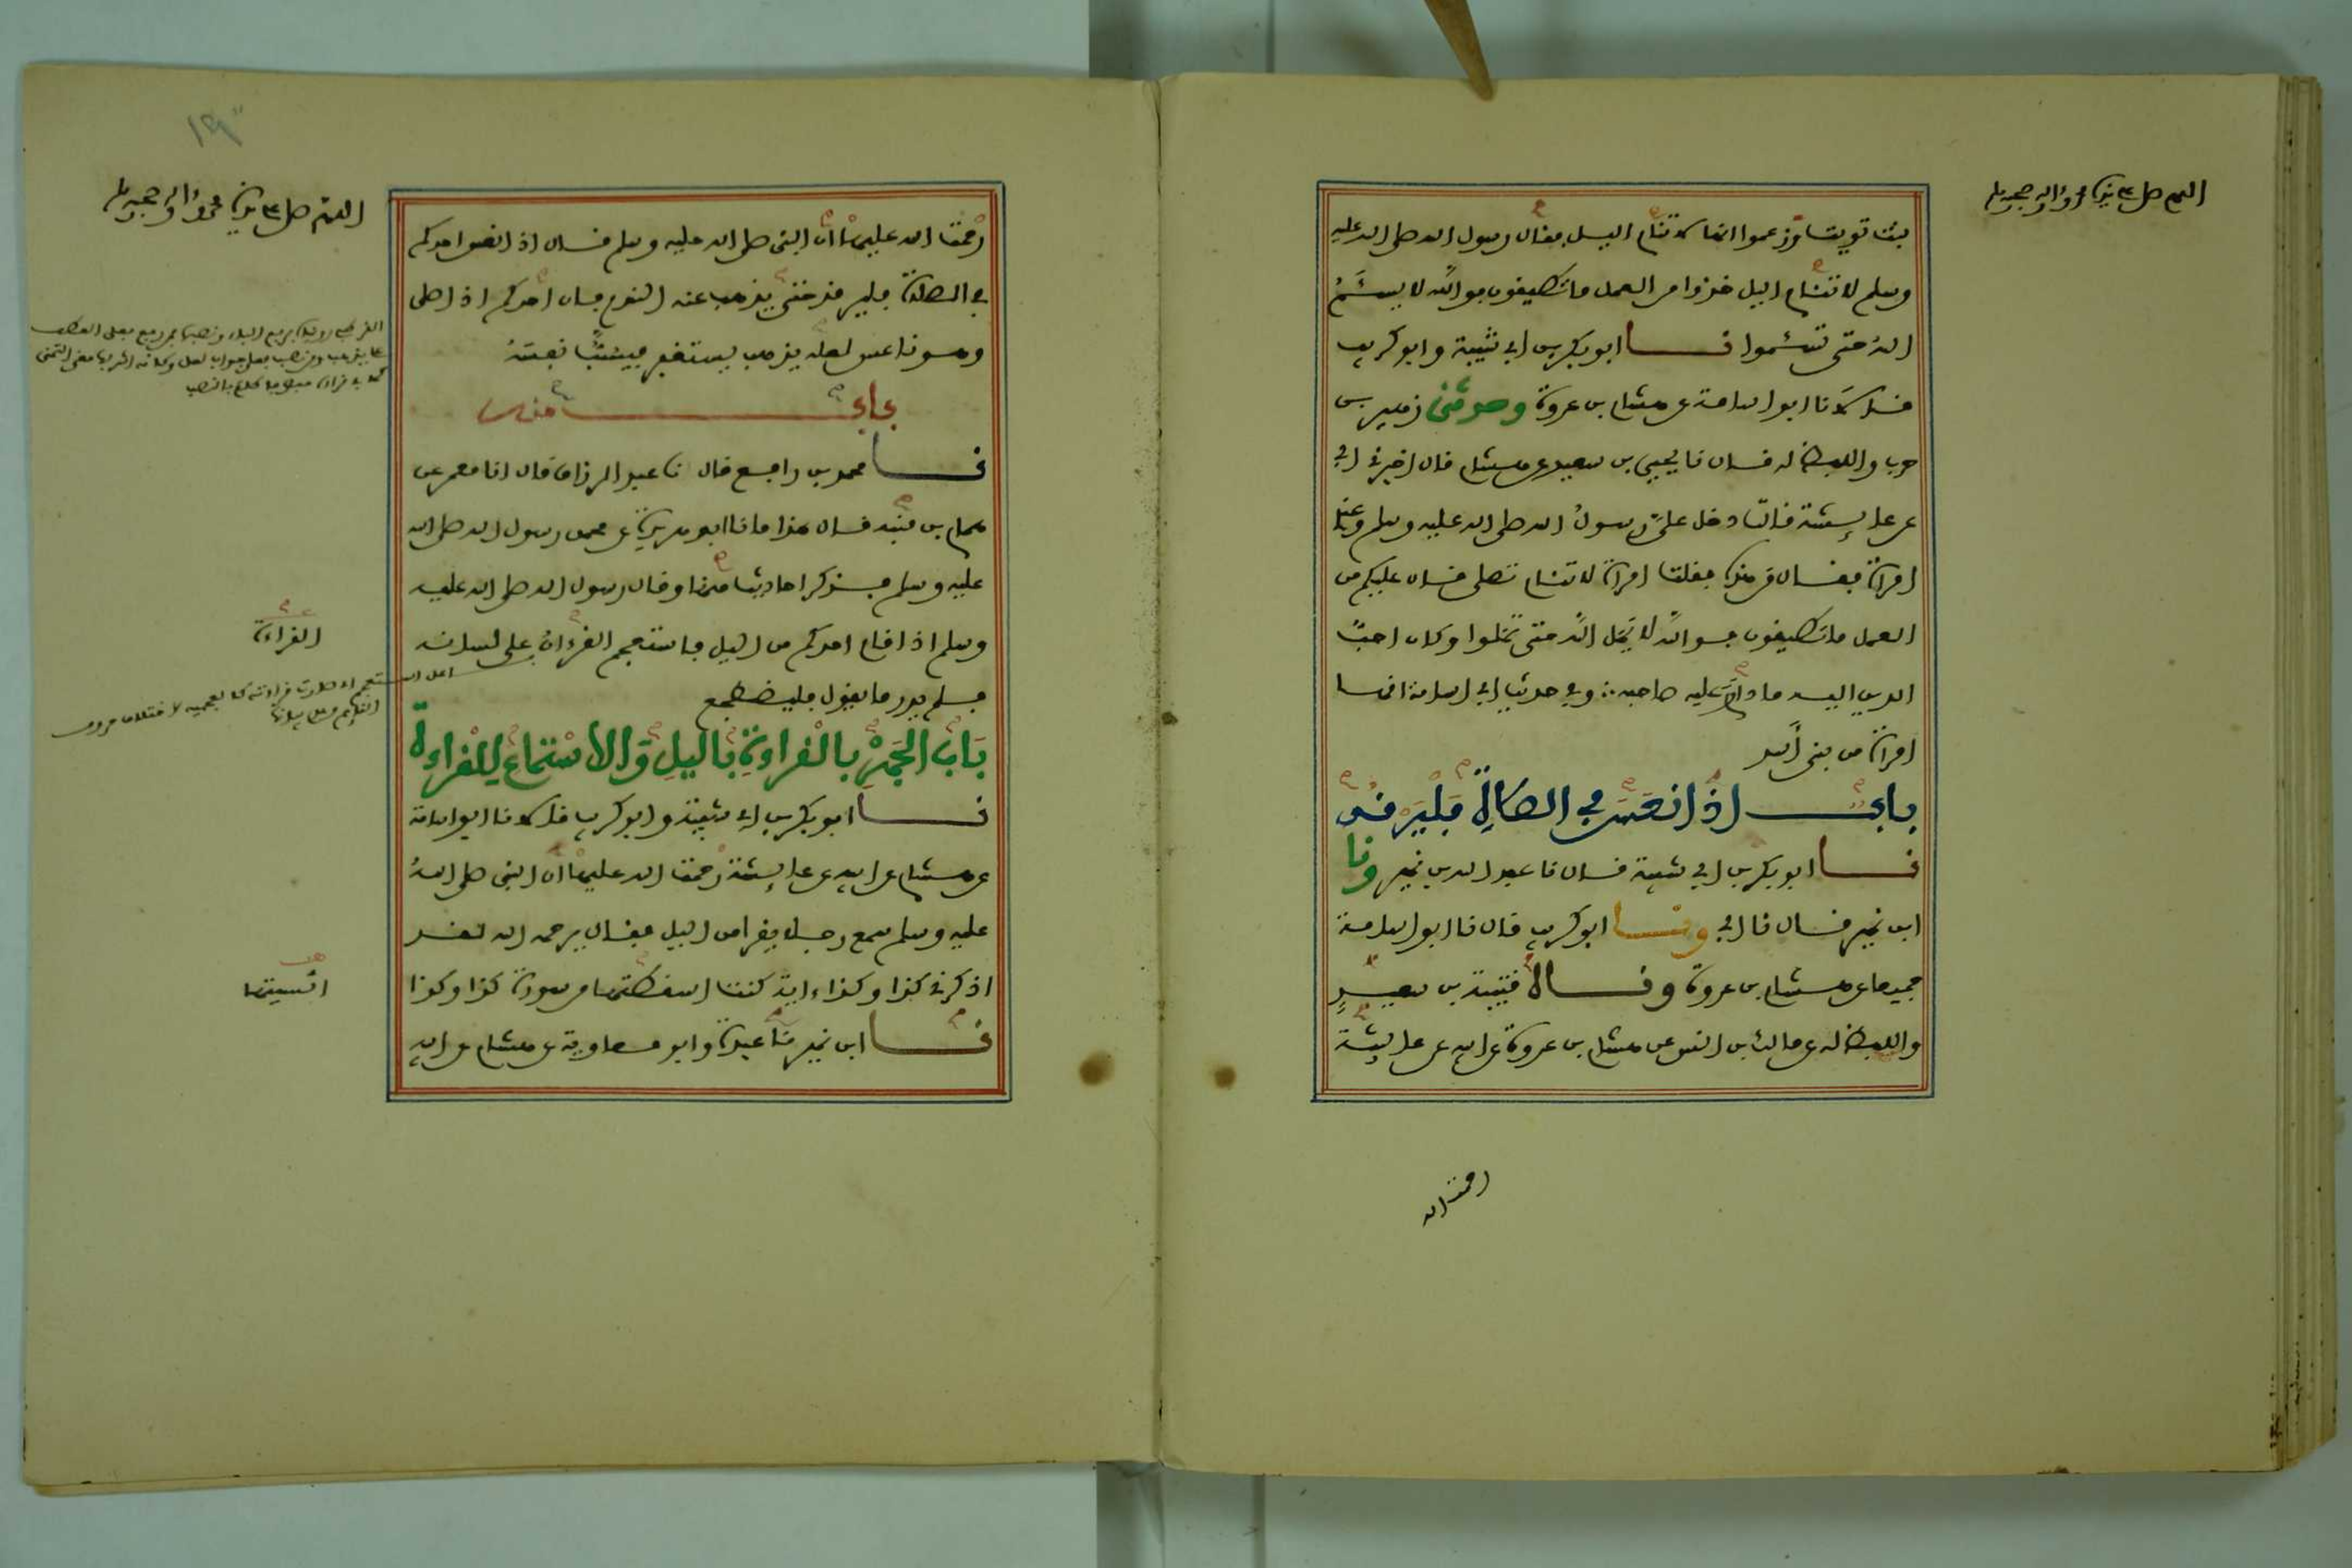 اللهم صل على سيدنا محمد واله وصحبه وسلم
بنت تويت وزعموا انها لا تنام اليل فقال رسول الله صلى الله عليه
وسلم لا تنام اليل خذوا من العمل ما تطيقون فوالله لا يسئم
الله حتى تسئموا نا ابو بكر بن ابي شيبة وابو كريب
قالا نا ابو اسامة عن هشام بن عروة وحدثني زهير بن
حرب واللفظ له قال نا يحيي بن سعيد عن هشام قال اخبرني ابي
عن عايشة قالت دخل علي رسول الله صلى الله عليه وسلم وعندي
امراة فقال من هذه فقلت امراة لا تنام تصلى قال عليكم من
العمل ما تطيقون فوالله لا يمل الله حتى تملوا وكان احب
الدين اليه ما داوم عليه صاحبه وفي حديث ابي اسامة انها
امراة من بنى اسد
باب اذا نعس في الصلاة فليرقد
نا ابو بكر بن ابي شيبة قال نا عبد الله بن نمير ونا
ابن نمير قال نا ابي ونا ابو كريب قال نا ابو اسامة
جميعا عن هشام بن عروة ونا قتيبة بن سعيد
واللفظ له عن مالك بن انس عن هشام بن عروة عن ابيه عن عايشة
رحمة الله
اللهم صل على سيدنا محمد واله وصحبه وسلم
رحمة الله عليها ان النبى صلى الله عليه وسلم قال اذا نعس احدكم
في الصلاة فليرقد حتى يذهب عنه النوم فان احدكم اذا صلى
وهو ناعس لعله يذهب يستغفر فيسب نفسه
باب منه
نا محمد بن رافع قال نا عبد الرزاق قال انا معمر عن
همام بن منبه قال هذا ما نا ابو هريرة عن محمد رسول الله صلى الله
عليه وسلم فذكر احاديث منها وقال رسول الله صلى الله عليه
وسلم اذا قام احدكم من اليل فاستعجم القرءان على لسانه
فلم يدر ما يقول فليضطجع
باب الجهر بالقراءة باليل والاستماع للقراءة
نا ابو بكر بن ابي شيبة وابو كريب قالا نا ابو اسامة
عن هشام عن ابيه عن عايشة رحمة الله عليها ان النبى صلى الله
عليه وسلم سمع رجلا يقرا من اليل فقال يرحمه الله لقد
اذكرني كذا وكذا ءاية كنت اسقطتها من سورة كذا وكذا
نا ابن نمير نا عبدة وابو معاوية عن هشام عن ابيه
القراءة
انسيتها